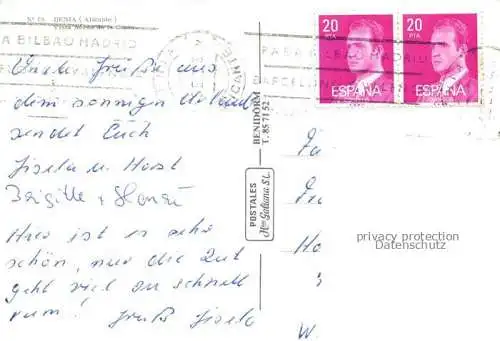 Nº 78 DENIA (Alicante)
PARA BILBAO MADRID
ALICANTE
PARA BILBAO MADRID
BARCELONA
20 PTA
ESPAÑA
20 PTA
ESPAÑA
Unsere Grüße aus
dem sonnigen Urlaub
sendet Euch
Gisela u. Horst
Brigitte +
Hier ist es sehr
schön, nur die Zeit
geht viel zu schnell
rum! Gruß Gisela
BENIDORM
T. 85 71 52
POSTALES
Hnos Galiana S.L.
Fa
Ho
W.
privacy protection
Datenschutz